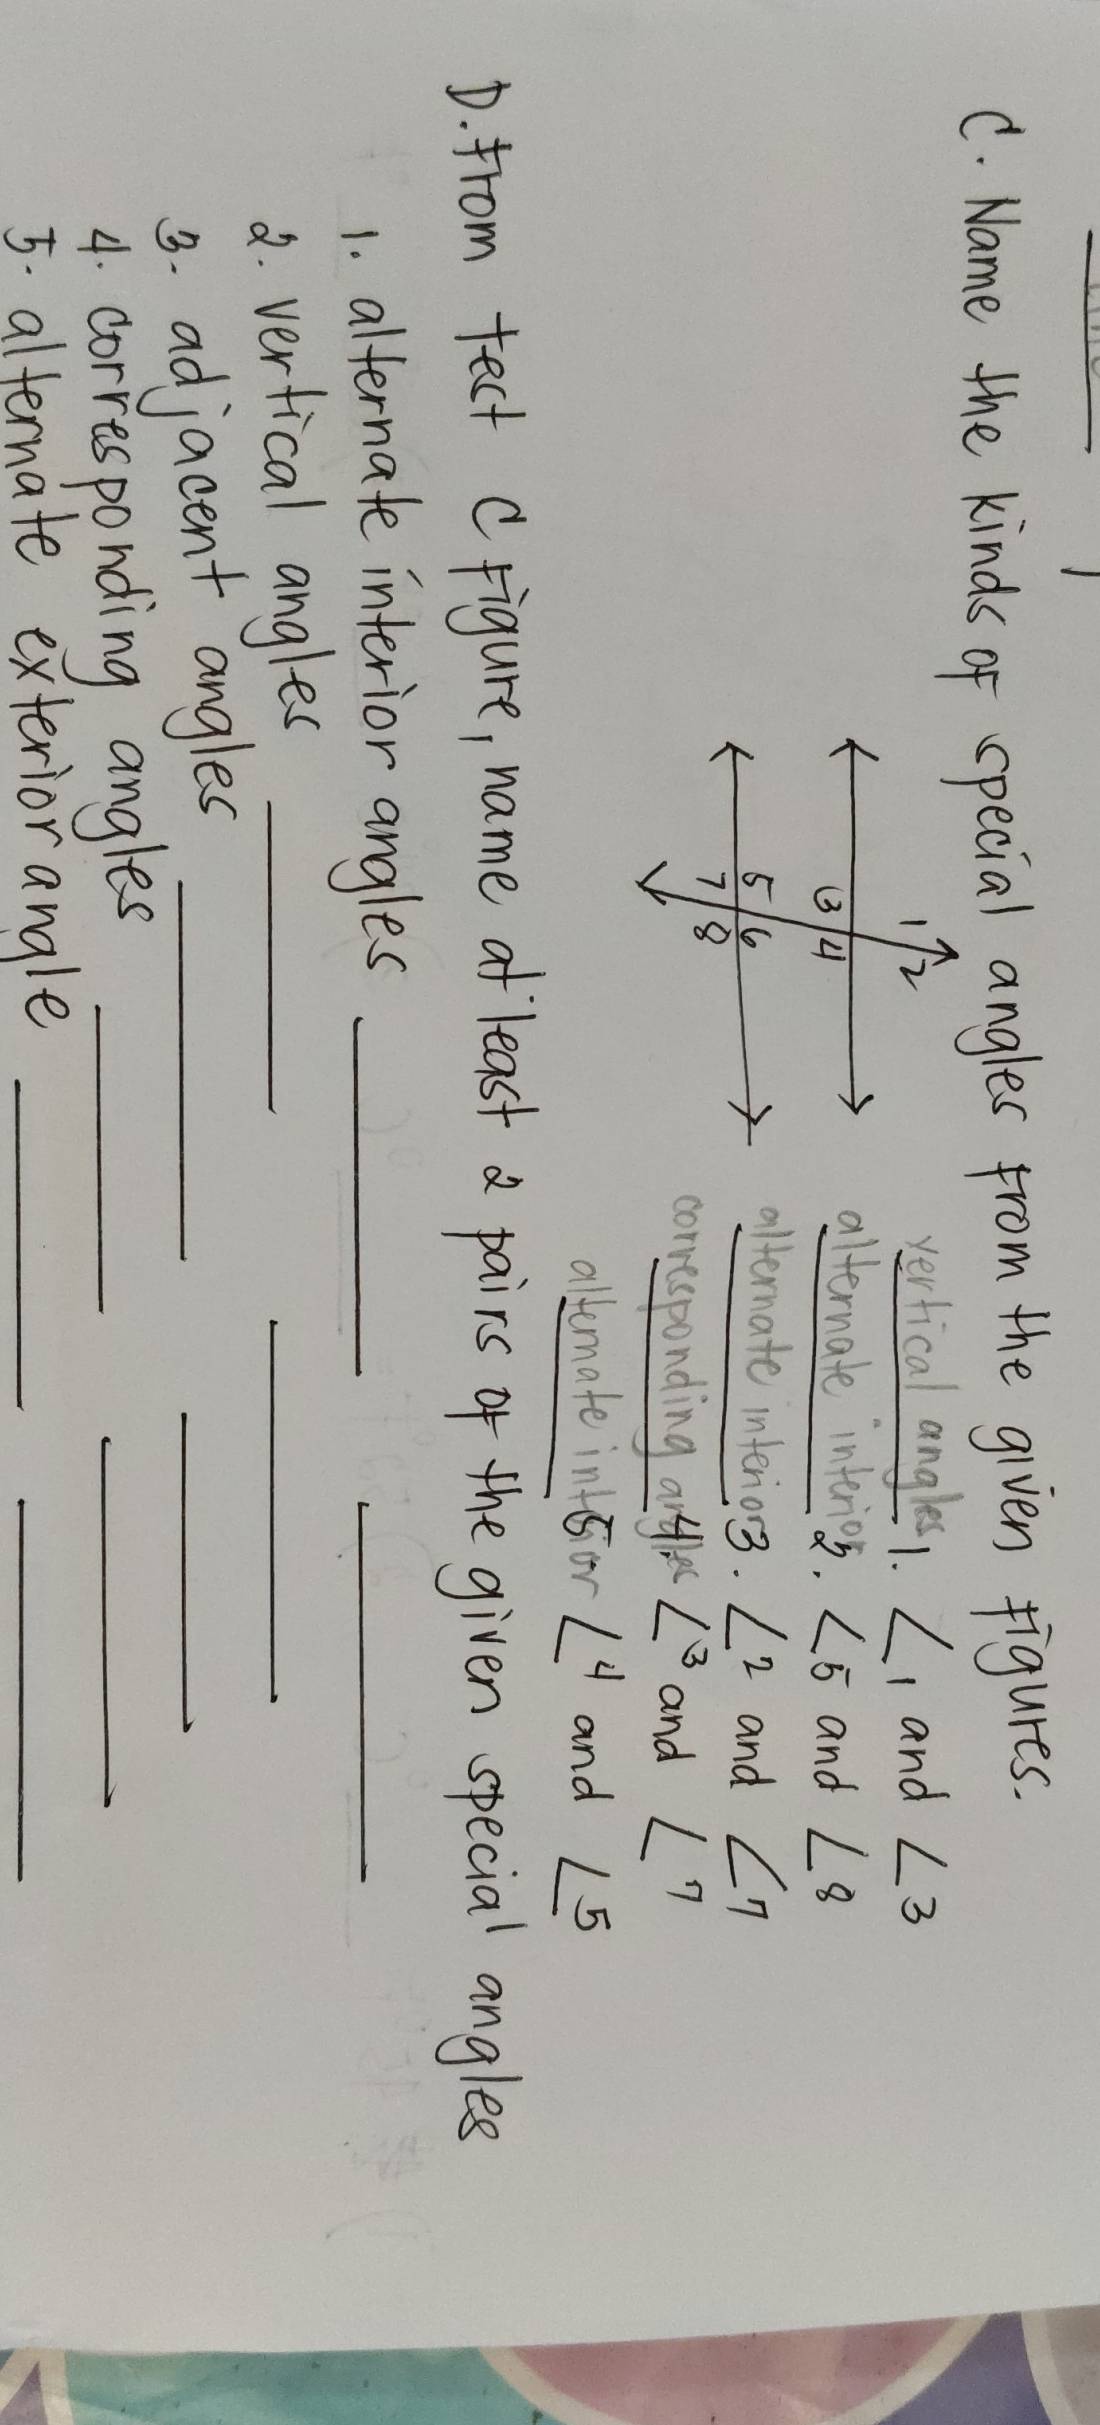 C. Name the kinds of special angles from the given figures.
1 2
3 4
5 6
7 8
vertical angles 1. ∠1 and ∠3
alternate interior 2. ∠5 and ∠8
alternate interior 3. ∠2 and ∠7
corresponding angles 4. ∠3 and ∠7
alternate interior 5. ∠4 and ∠5
D. From test C figure, name at least 2 pairs of the given special angles
1. alternate interior angles
2. vertical angles
3. adjacent angles
4. corresponding angles
5. alternate exterior angle